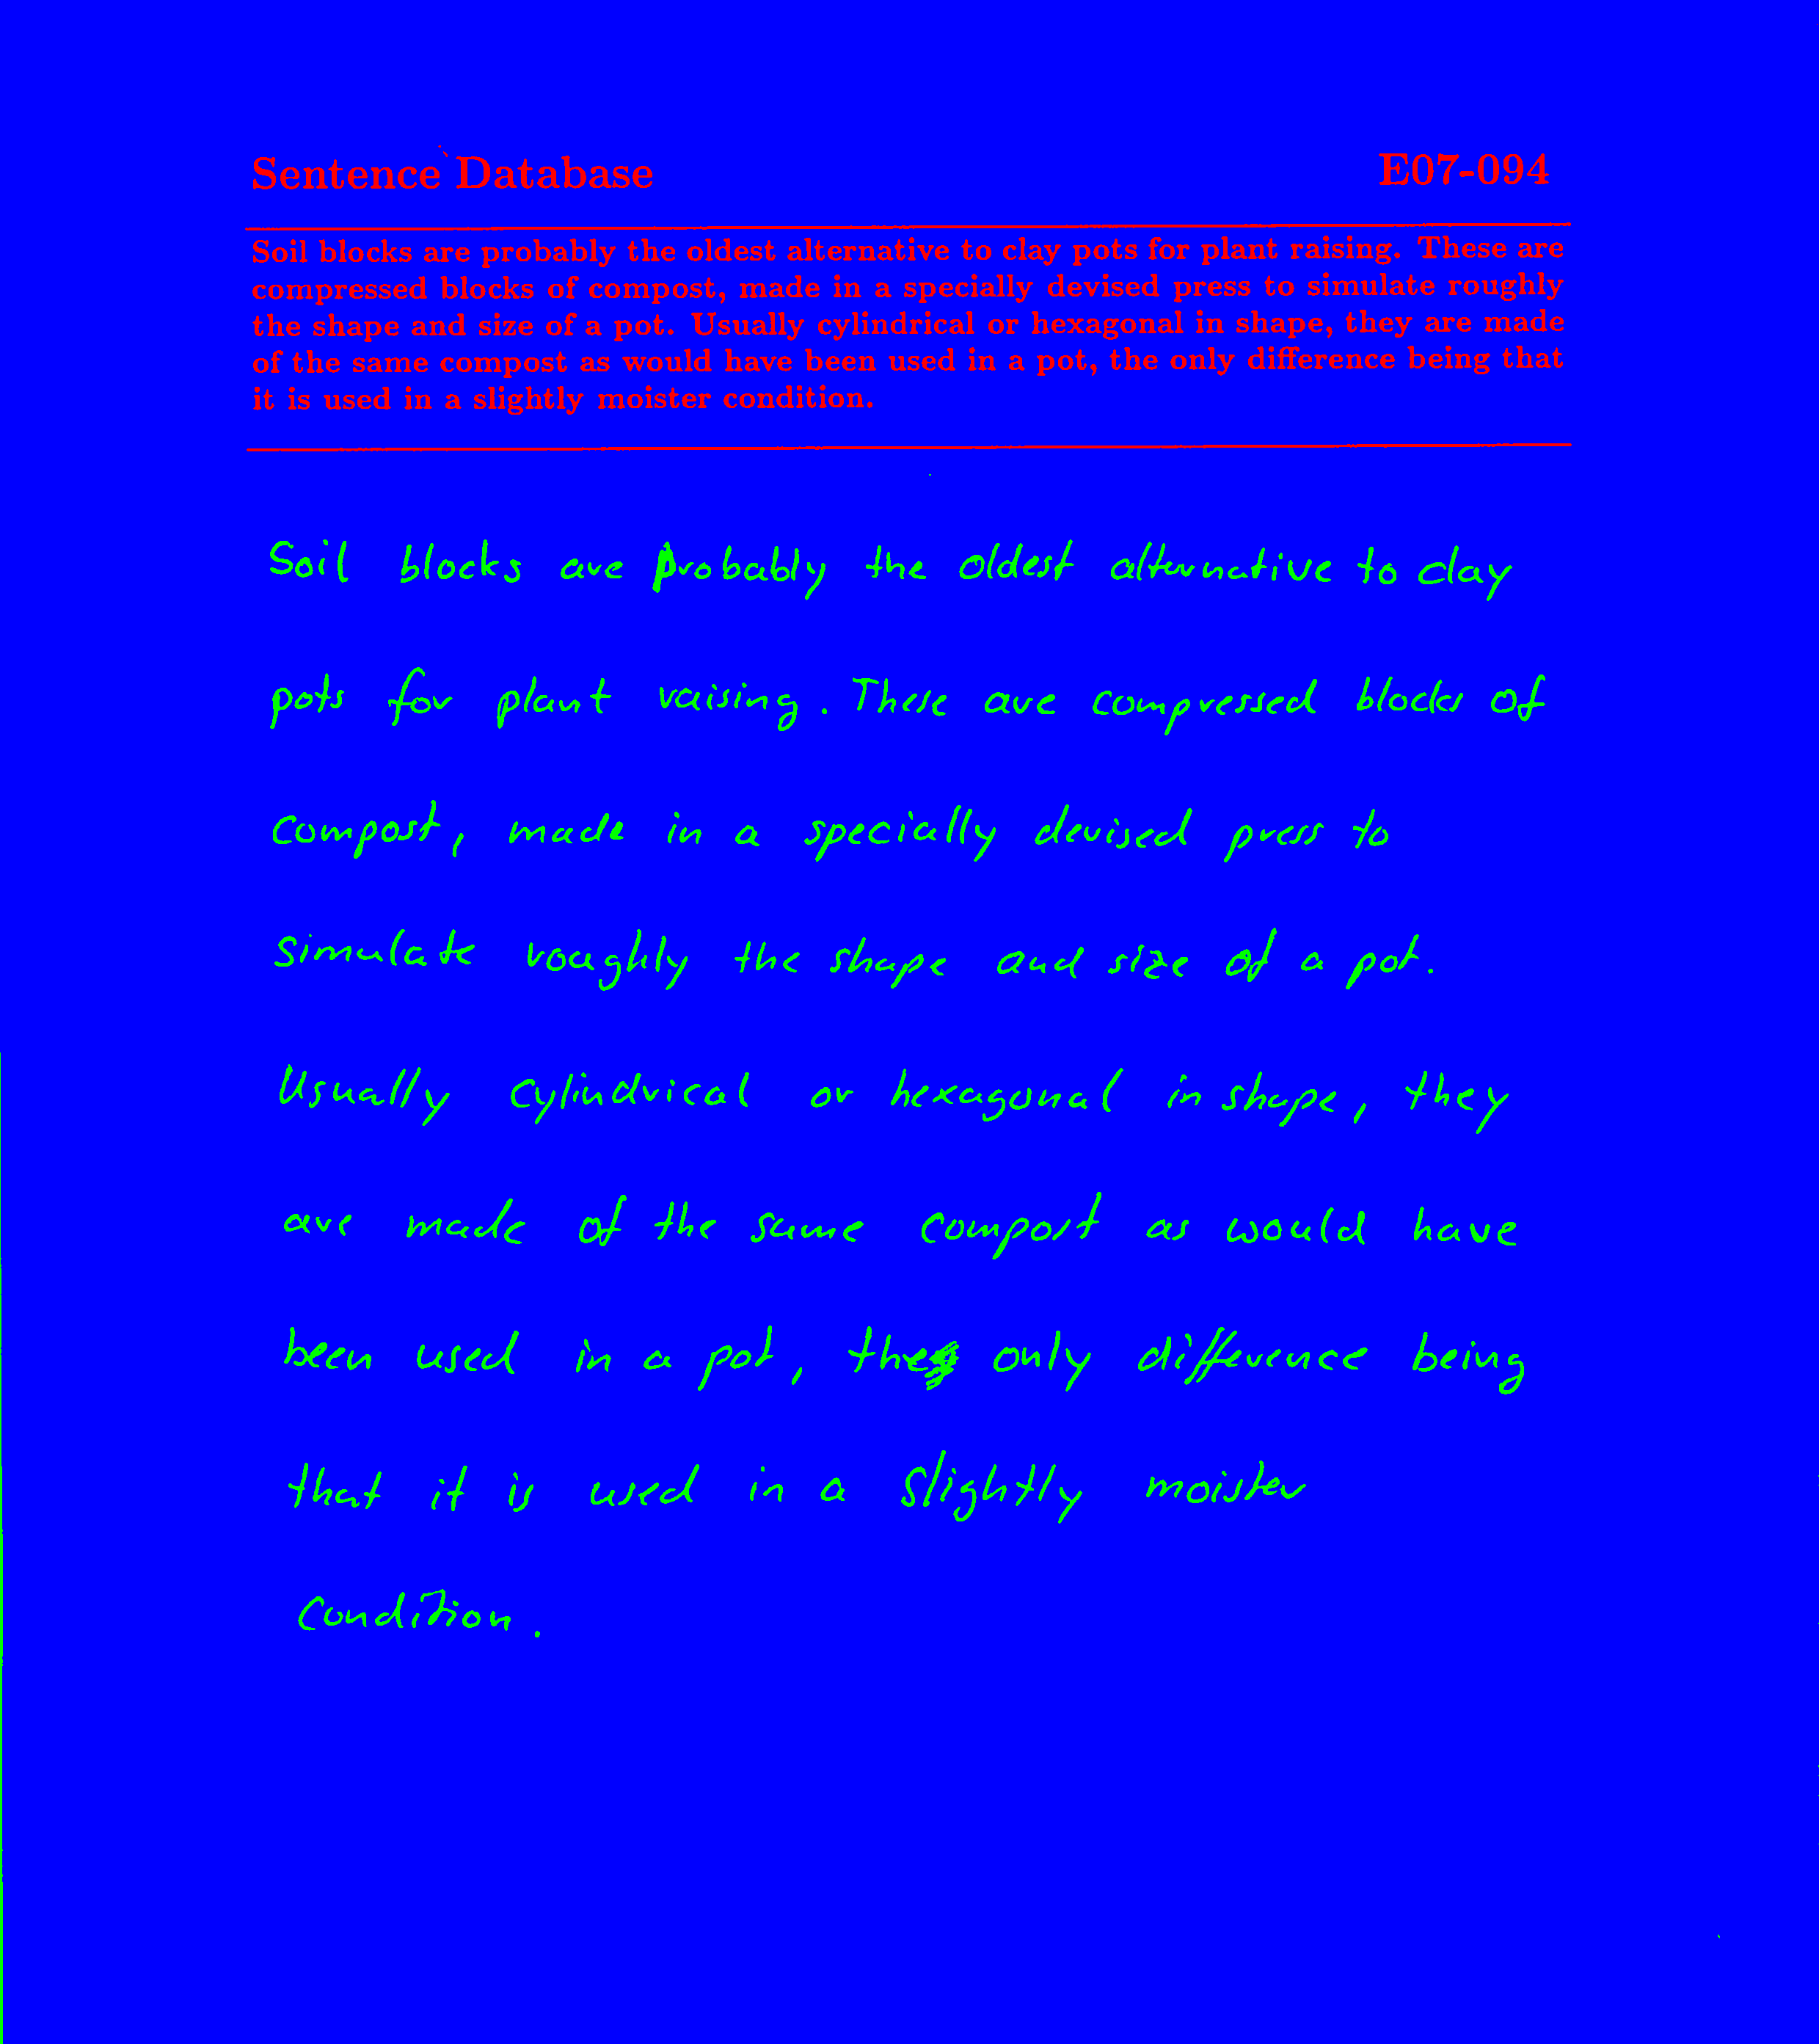 Sentence Database E07-094
Soil blocks are probably the oldest alternative to clay pots for plant raising. These are
compressed blocks of compost, made in a specially devised press to simulate roughly
the shape and size of a pot. Usually cylindrical or hexagonal in shape, they are made
of the same compost as would have been used in a pot, the only difference being that
it is used in a slightly moister condition.
Soil blocks are probably the oldest alternative to clay
pots for plant raising. These are compressed blocks of
compost, made in a specially devised press to
simulate roughly the shape and size of a pot.
Usually cylindrical or hexagonal in shape, they
are made of the same compost as would have
been used in a pot, the only difference being
that it is used in a slightly moister
condition.